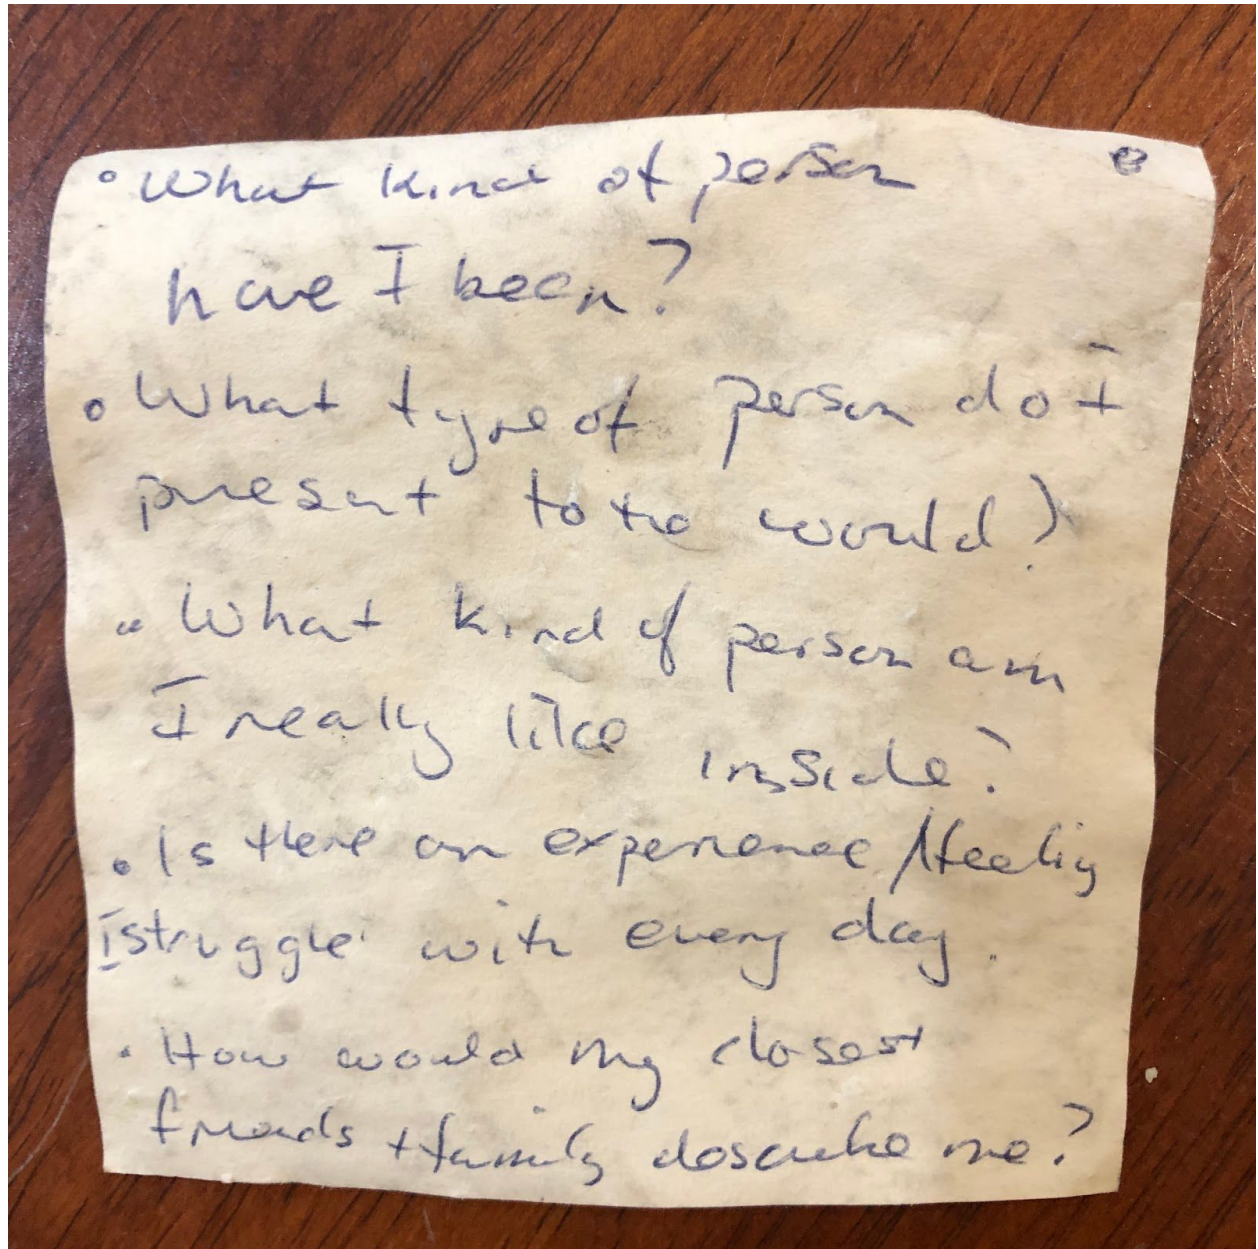 ° What kind of person
have I been?
° What type of person do I
present to the world?
° What kind of person am
I really like inside?
• Is there an experience /feeling
I struggle with every day.
• How would my closest
friends + family describe me?